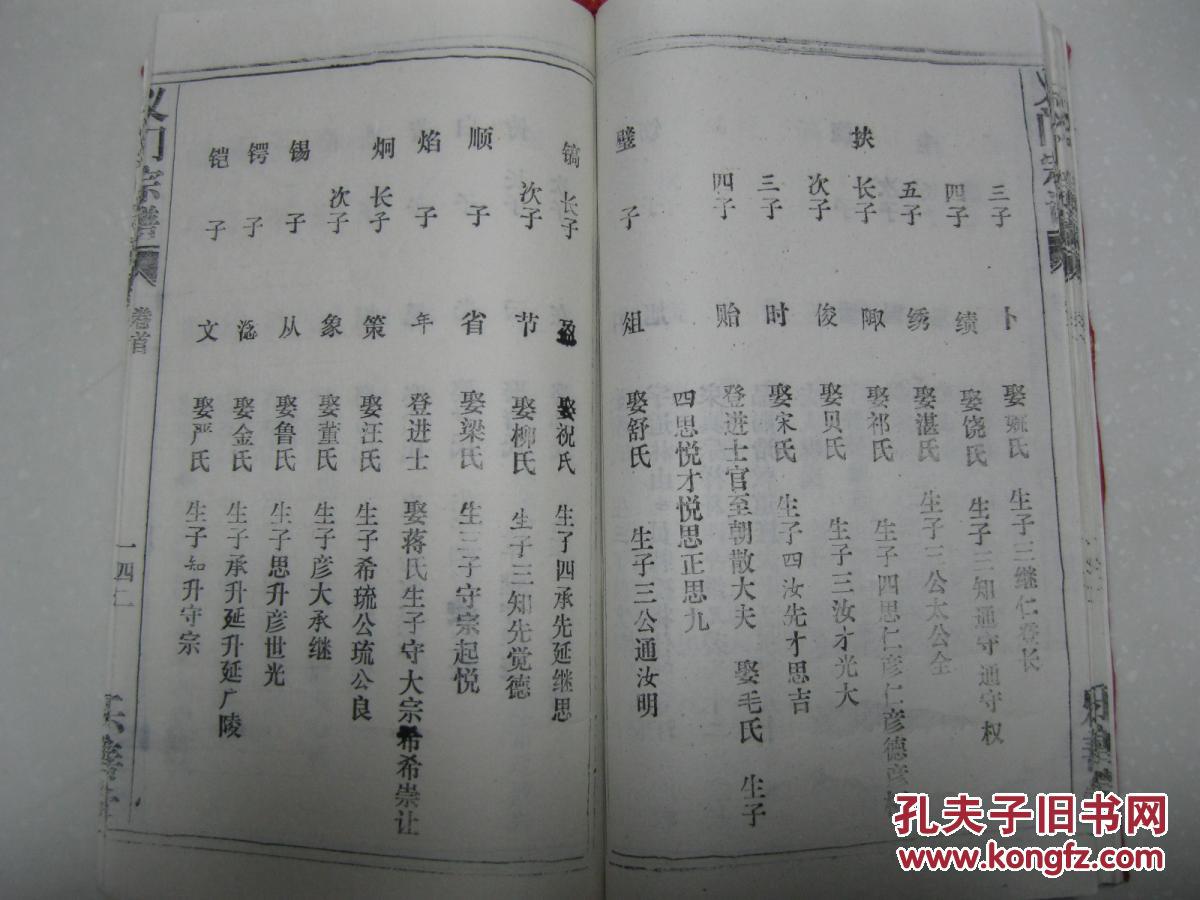 三子 卜 娶 氏 生子三继仁 长
四子 绩 娶饶氏 生子三知通守通守权
五子 绣 娶湛氏 生子三公太公全
扶 长子 陬 娶祁氏 生子四思仁彦仁彦德彦
次子 俊 娶贝氏 生子三汝才光大
三子 时 娶宋氏 生子四汝先才思吉
四子 贻 登进士官至朝散大夫 娶毛氏 生子
四思悦才悦思正思九
璧 子 俎 娶舒氏 生子三公通汝明
镐 长子 娶祝氏 生了四承先延继思
次子 节 娶柳氏 生子三知先觉德
顺 子 省 娶梁氏 生三子守宗起悦
焰 子 年 登进士 娶蒋氏生子守大宗希希崇让
炯 长子 策 娶汪氏 生子希琉公琉公良
次子 象 娶董氏 生子彦大承继
锡 子 从 娶鲁氏 生子思升彦世光
锷 子 娶金氏 生子承升延升延广陵
铠 子 文 娶严氏 生子知升守宗
义门宗谱
卷首
孔夫子旧书网
www.kongfz.com